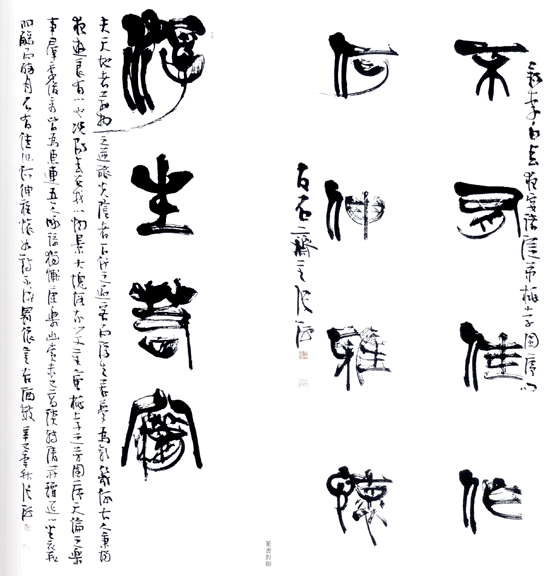 錄李白春夜宴諸從弟桃李園序句
不有佳作
何伸雅懷
浮生若夢
夫天地者萬物之逆旅光陰者百代之過客而浮生若夢為歡幾何古人秉燭
夜遊良有以也況陽春召我以煙景大塊假我以文章會桃李之芳園序天倫之樂
事群季俊秀皆為惠連吾人詠歌獨慚康樂幽賞未已高談轉清開瓊筵以坐花飛
羽觴而醉月不有佳作何伸雅懷如詩不成罰依金谷酒數
篆書對聯